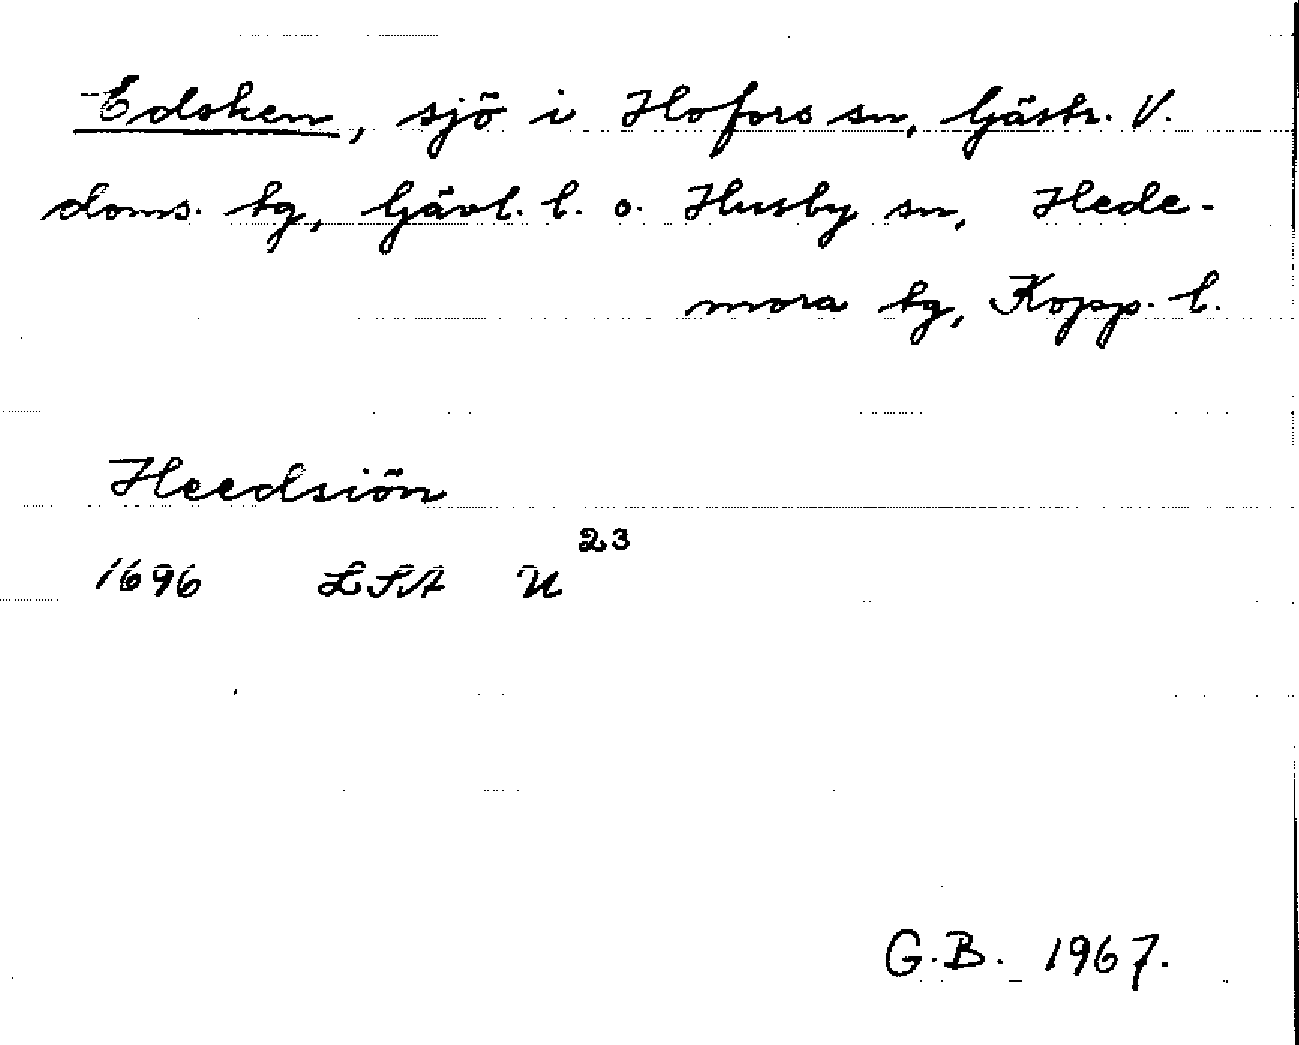 Edsken, sjö i Hofors sn, Gästr. V.
doms. tg, Gävl. l. o. Husby sn, Hede-
mora tg, Kopp. l.
Heedsiön
1696 LSA U 23
G.B. 1967.